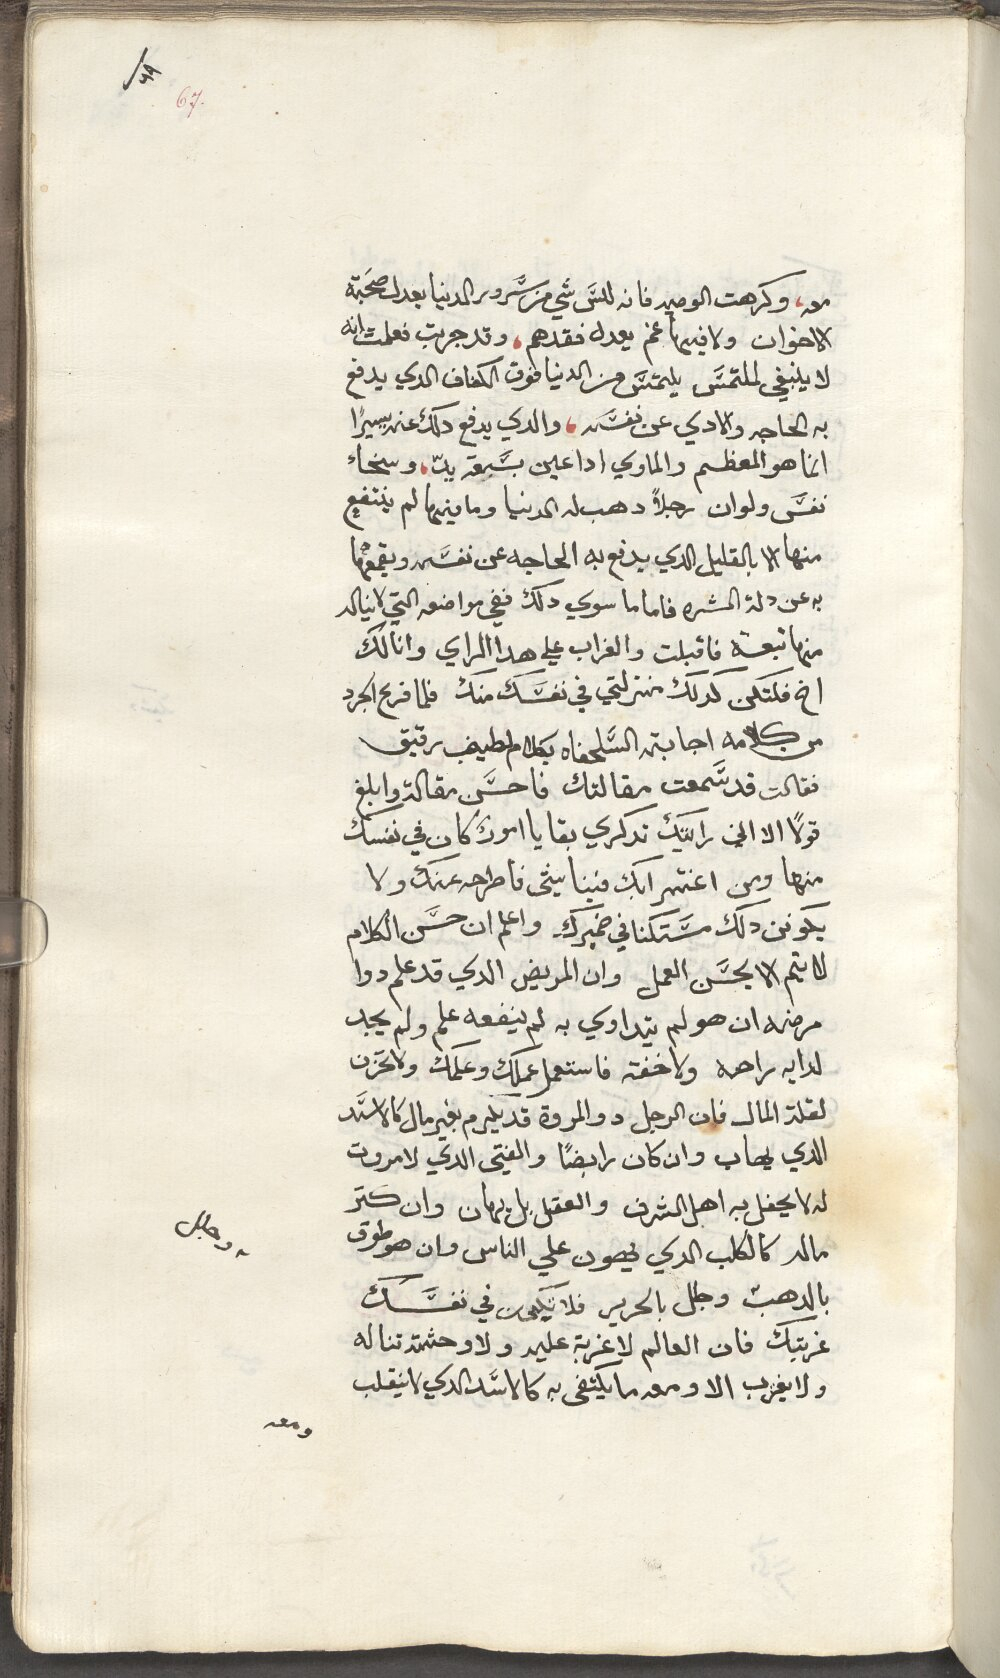 67.
معه، وكرهت الوحيد فانه لليس شي من سرور الدنيا يعدل صحبة
الاخوان ولا فيها غم يعدل فقدهم، وقد جربت فعلمت انه
لا ينبغي لملتمس يلتمس من الدنيا فوق الكفاف الدي يدفع
به الحاجه والادي عن نفسه، والدي يدفع دلك عنه يسيرًا
انما هو المطعم والماوي ادا عين بسعة يدٍ، وسخاء
نفس ولو ان رجلاً دهب له الدنيا وما فيها لم ينتفع
منها الا بالقليل الدي يدفع به الحاجه عن نفسه ويقمعها
به عن دلة الشره فاما ما سوي دلك ففي مواضعه التي لا ينالد
منها تبعة فاقبلت والغراب علي هدا الراي وانا لك
اخ فلتكن كدلك منزلتي في نفسك منك فلما فرغ الجرد
من كلامه اجابته السلحفاه بكلام لطيف رقيق
فقالت قد سمعت مقالتك فاحسن مقالة وابلغ
قولًا الا اني رايتك تدكري بقايا امور كان في نفسك
منها ومن اغترابك فينا شي فاطرحه عنك ولا
يكونن دلك مستكنا في ضميرك واعلم ان حسن الكلام
لا يتم الا بحسن العمل وان المريض الدي قد علم دوا
مرضه ان هو لم يتداوي به لم ينفعه علم ولم يجد
لدايه راحه ولا خفة فاستعمل عملك وعلمك ولا تحزن
لقلة المال فان الرجل دو المروة قد يكرم بغير مال كالاسد
الدي يهاب وان كان رابضًا والفتي الدي لا مروت
له لا يحفل به اهل الشرف والعقل بل يهان وان كتر
ماله كالكلب الدي يهون علي الناس وان هو طوق
بالدهب وجلل بالحرير فلا تكبرن في نفسك
غربتك فان العالم لا غربة عليه ولا وحشة تناله
ولا يغرب الا ومعه ما يكتفي به كالاسد الدي لا ينقلب
وجلل
ومعه